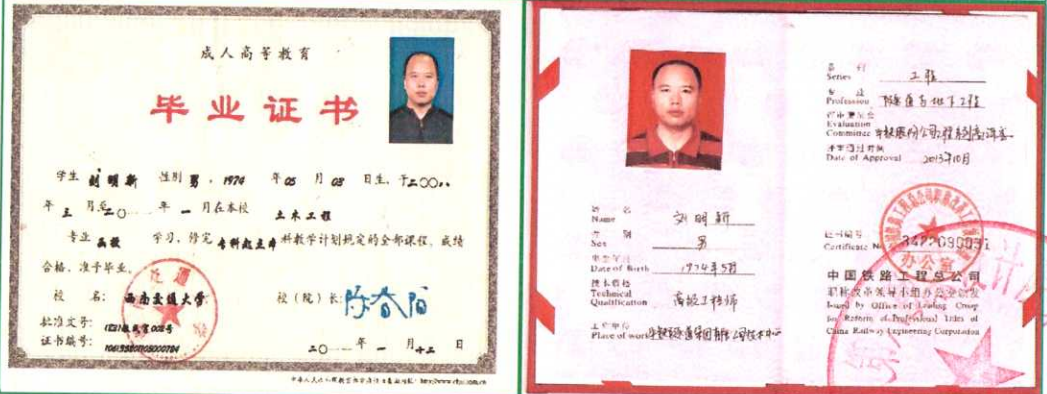 成人高等教育
毕业证书
学生 刘明新 性别 男 , 1974 年 05 月 03 日生, 于二〇〇八
年 三 月至二〇一一 年 一 月在本校 土木工程
专业 函授 学习, 修完 专科起点本 科教学计划规定的全部课程, 成绩
合格, 准予毕业。
校 名: 西南交通大学
校 (院) 长:
批准文号:
证书编号:
二〇一一 年 一 月 十二 日
系 列
Series
工程
专 业
Profession
隧道与地下工程
评审委员会
Evaluation
Committee
评审通过时间
Date of Approval
2013年10月
姓 名
Name
刘明新
性 别
Sex
男
出生年月
Date of Birth
1974年5月
技术资格
Technical
Qualification
高级工程师
工作单位
Place of work
证书编号
Certificate No
办公室
中国铁路工程总公司
职称改革领导小组办公室颁发
Issued by Office of Leading Group
for Reform of Professional Titles of
China Railway Engineering Corporation